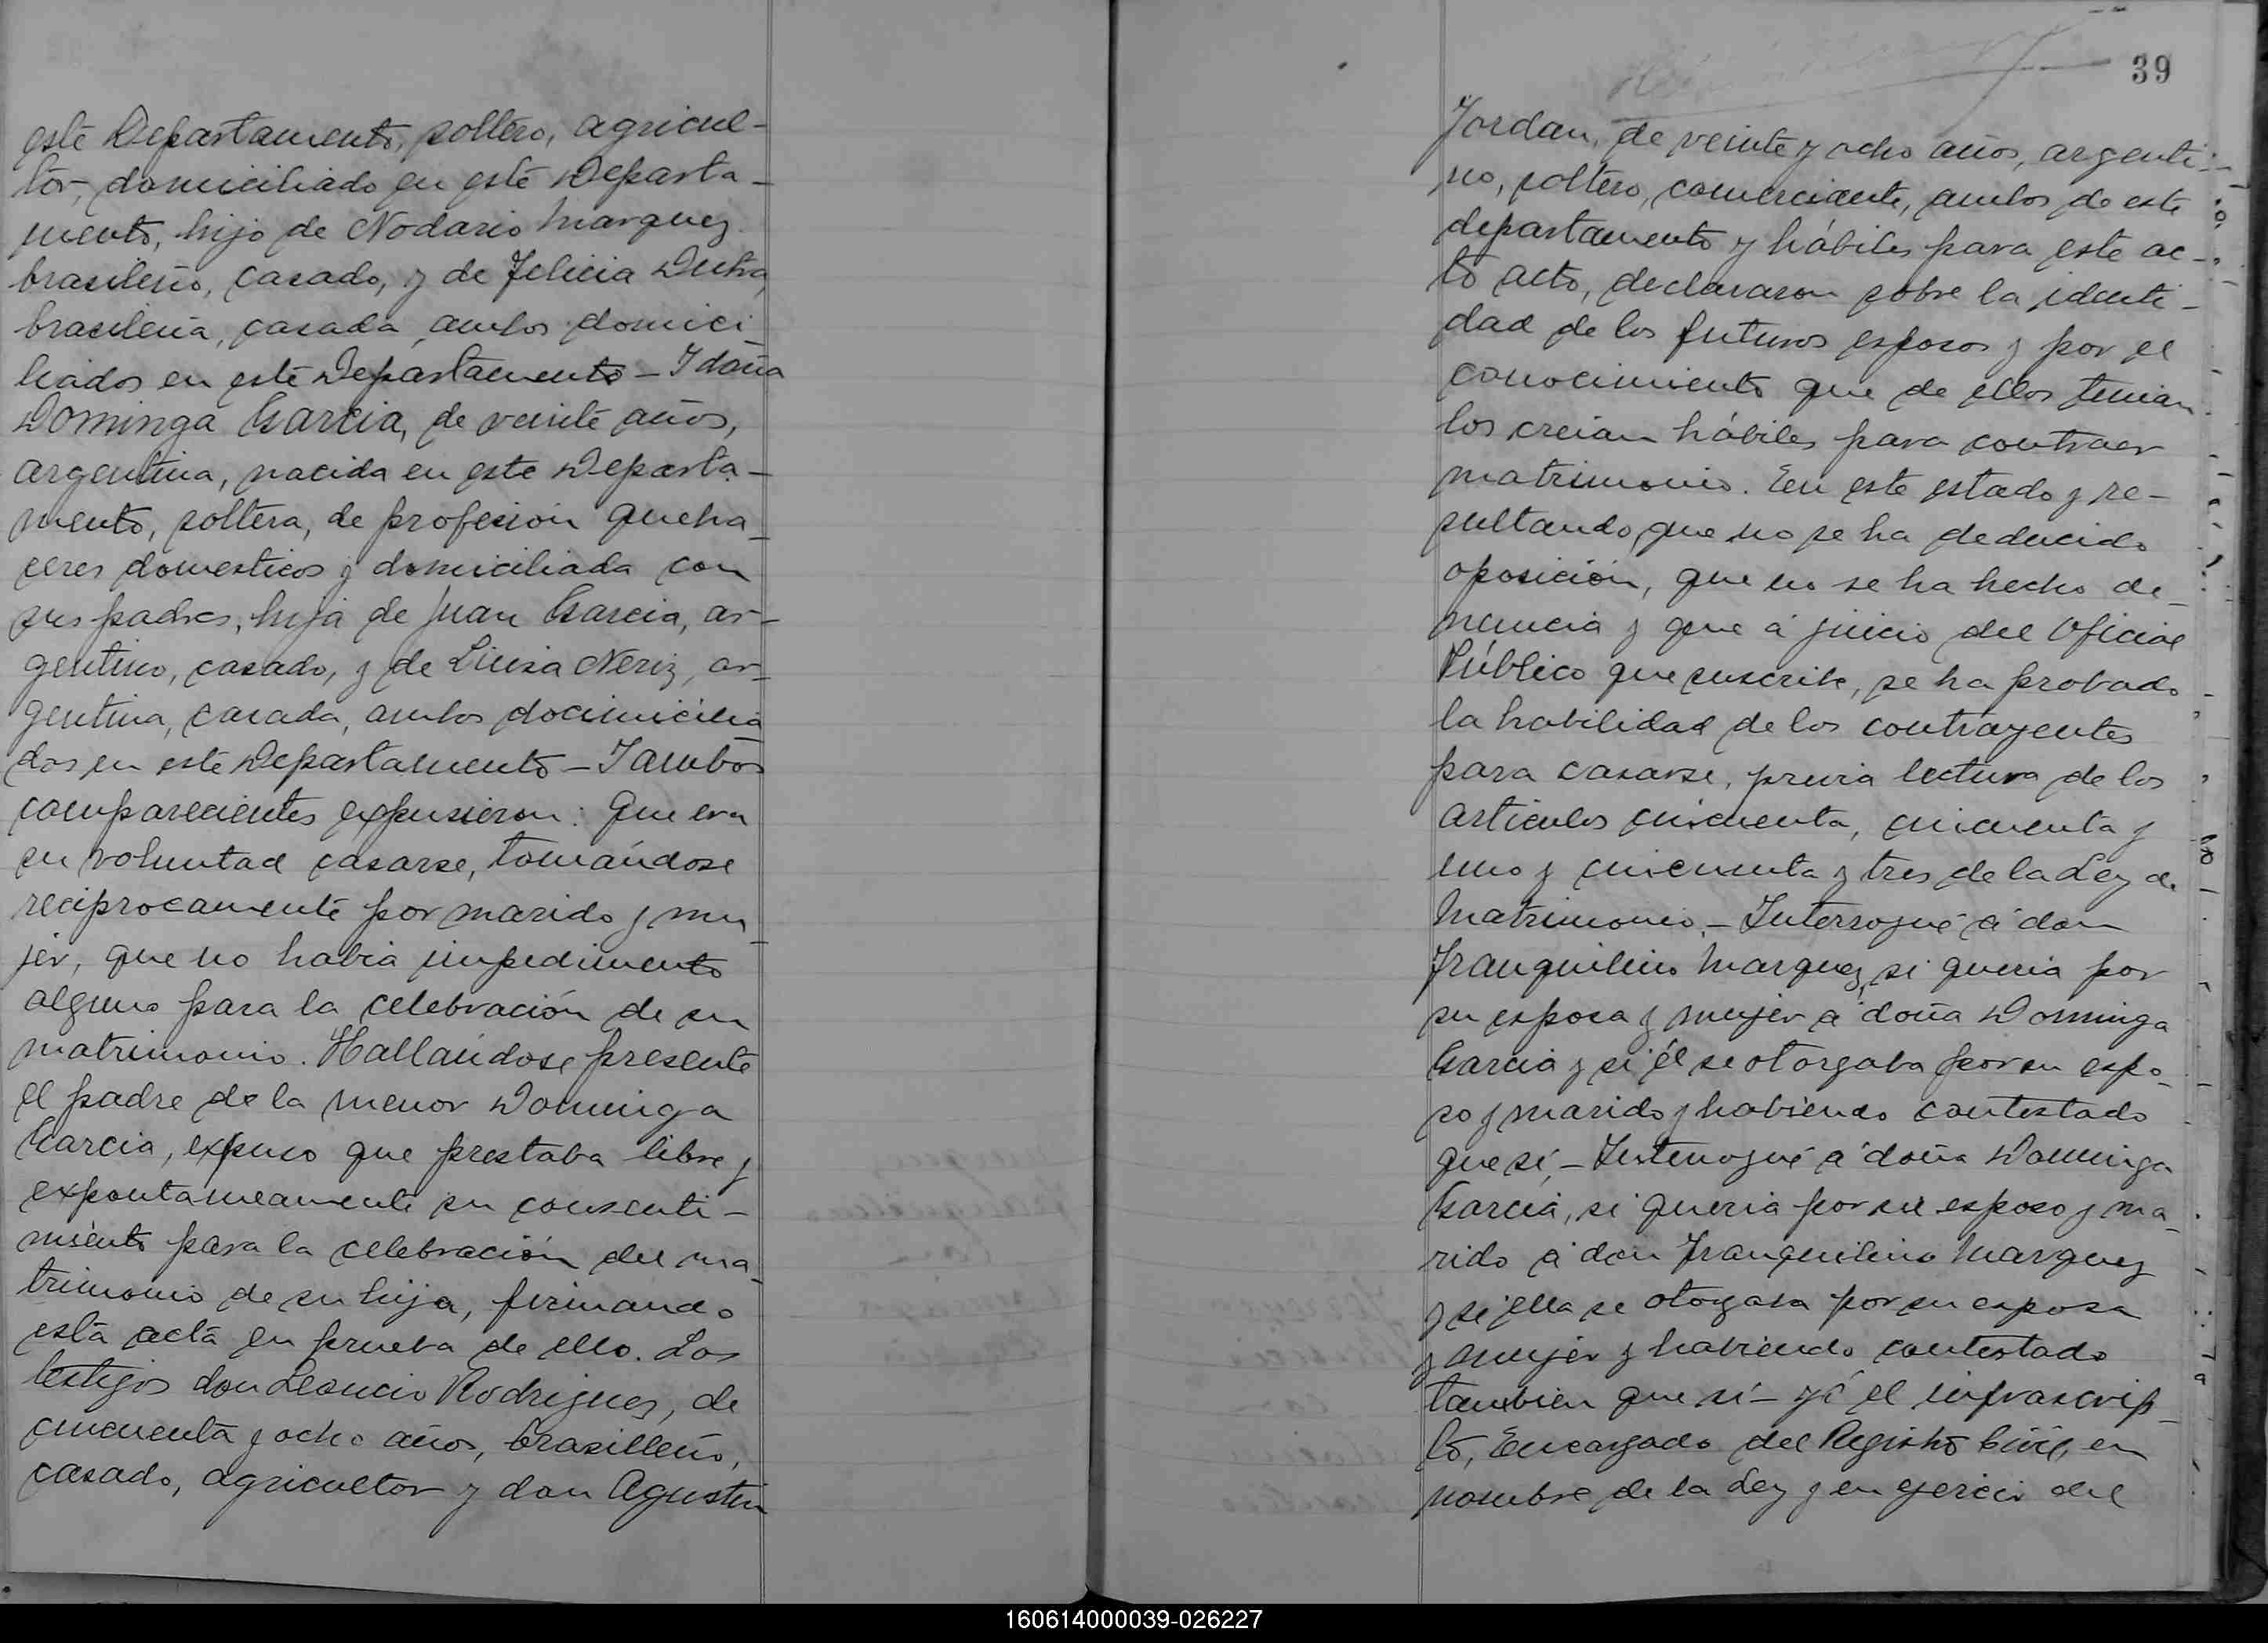 este Departamento, soltero, agricul-
tor, domiciliado en este Departa-
mento, hijo de Nodario Marquez
brasileño, casado, y de Felicia Dutra,
brasileña, casada, ambos domici
liados en este Departamento - I doña
Dominga Garcia, de veinte años,
argentina, nacida en este Departa-
mento, soltera, de profesión queha_
ceres domesticos y domiciliada con
sus padres, hija de Juan Garcia, ar-
gentino, casado, y de Luisa Neriz, ar_
gentina, casada, ambos docimicilia
dos en este Departamento - I ambos
comparecientes expusieron: Que era
su voluntad casarse, tomándose
reciprocamente por marido y mu_
jer, que no habia impedimento
alguno para la celebración de su
matrimonio. Hallándose presente
el padre de la menor Dominga
Garcia, expuso que prestaba libre y
expontaneamente su consenti-
miento para la celebración del ma_
trimonio de su hija, firmando
esta acta en prueba de ello. Los
testigos don Leoncio Rodriguez, de
cincuenta y ocho años, brasilleño,
casado, agricultor y don Agustin
39
Jordan, de veinte y ocho años, argenti-
no, soltero, comerciante, ambos de este
departamento y hábiles para este ac-
to acto, declararon sobre la identi-
dad de los futuros esposos y por el
conocimiento que de ellos tenian
los creian hábiles para contraer
matrimonio. En este estado y re-
sultando que no se ha deducido
oposición, que no se ha hecho de_
nuncia y que á juicio del Oficial
Público que suscribe, se ha probado
la habilidad de los contrayentes
para casarse, previa lectura de los
articulos cincuenta, cincuenta y
uno y cincuenta y tres de la Ley de
Matrimonio. - Interrogué á don
Tranquilino Marquez, si queria por
su esposa y mujer á doña Dominga
Garcia y si él se otorgaba por su espo_
so y marido y habiendo contestado
que sí - Interrogué á doña Dominga
Garcia, si queria por su esposo y ma_
rido á don Tranquilino Marquez
y si ella se otorgaba por su esposa
y mujer y habiendo contestado
tambien que sí - yó el infrascrip_
to, Encargado del Registro Civil, en
nombre de la Ley y en ejercio del
160614000039-026227